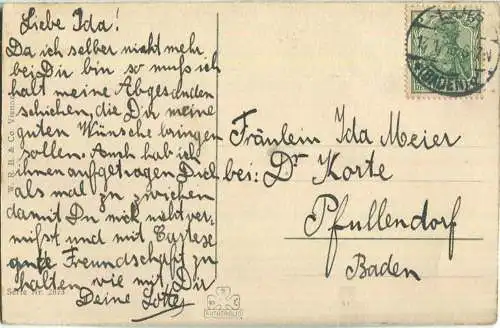 Liebe Ida!
Da ich selber nicht mehr
bei Dir bin so muß ich
halt meine Abgesanden
schicken, die Dir meine
guten Wünsche bringen
sollen. Auch hab ich
ihnen aufgetragen Dich
als mal zu zwicken
damit Du mich nicht ver-
mißt und mit
gute Freundschaft zu
halten wie mit Dir
Deine Lotte
Fräulein Ida Meier
bei: Dr Korte
Pfullendorf
Baden
(BADEN)
W. R. B. & Co. Vienne
Serie Nr. 2823